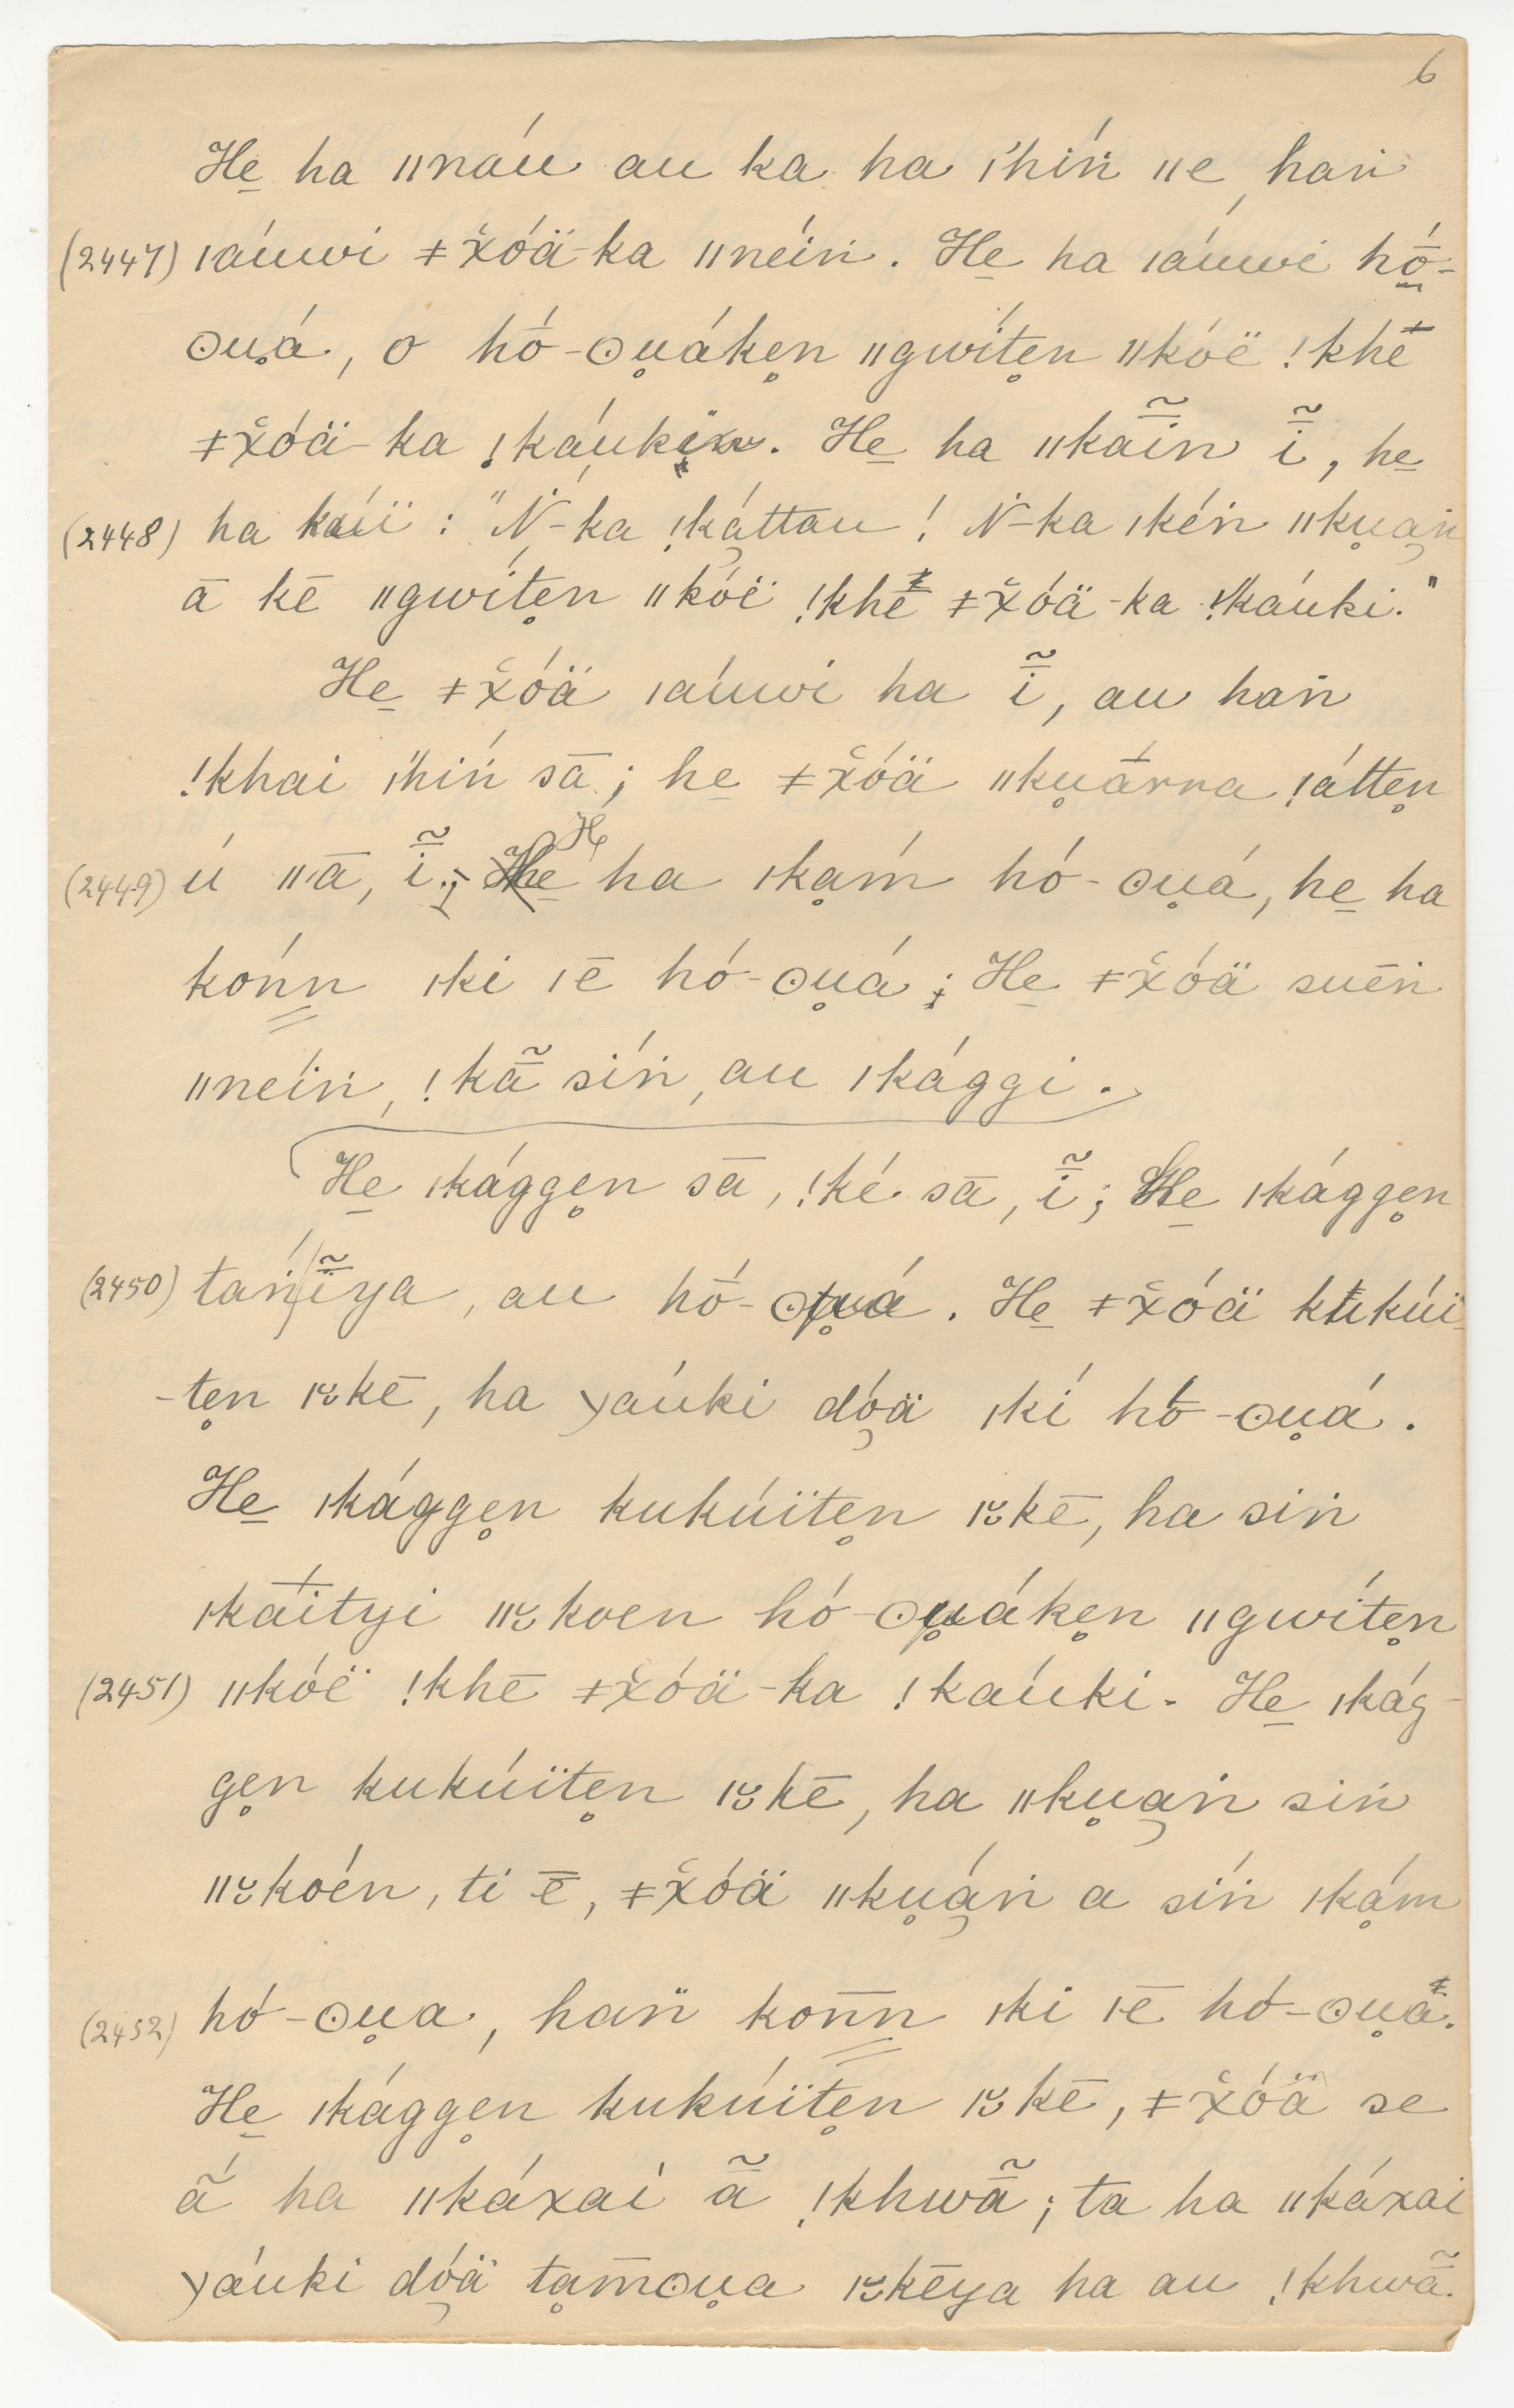 6
He̱ ha ǁnáu au ka ha ǀhíṅ ǁe, haṅ
(2447) ǀáuwi ǂx̌óä-ka ǁnéiṅ. He̱ ha ǀáuwi hṓ̱-
ʘu̥á, o hṓ-ʘu̥áke̥n ǁgwíte̥n ǁkóë !khē
ǂx̌óä-ka !káuki. He̱ ha ǁkaī̃n ī̃, he̱
(2448) ha kúï : "Ṅ-ka !ká̜ttau! Ṅ-ka ǀkéṅ ǁku̥a̜ṅ
ā kē ǁgwíte̥n ǁkóë !khē ǂx̌óä-ka !káuki."
He̱ ǂx̌óä ǀáuwi ha ī̃, au haṅ
!khai ǀhíṅ sā; he̱ ǂx̌óä ǁku̥ā́rra !átte̥n
(2449) ú ǁā, ī̃; He̱ ha ǀkḁḿ hó-ʘu̥á, he̱ ha
kóṅn̳ ǀki ǀē hó-ʘu̥á; He̱ ǂx̌óä suēṅ
ǁnéiṅ, !kā̃ síṅ, au ǀkággi.
He̱ ǀkágge̥n sā, !ké sā, ī̃; He̱ ǀkágge̥n
(2450) táṅ ī̃ya, au hṓ-ʘu̥á. He̱ ǂx̌óä kukúï-
-te̥n ǀ꜒kē, ha ƴáuki dó̜ä ǀkí hó-ʘu̥á.
He̱ ǀkágge̥n kukúïte̥n ǀ꜒kē, ha siṅ
ǀkā́ityi ǁ꜒koen hó-ʘu̥áke̥n ǁgwíte̥n
(2451) ǁkóë !khē ǂx̌óä-ka !káuki. He̱ ǀkág-
ge̥n kukúïte̥n ǀ꜒kē, ha ǁku̥a̜ṅ siṅ
ǁ꜒koén, ti ē, ǂx̌óä ǁku̥á̜ṅ a síṅ ǀkḁ́m
(2452) hó-ʘu̥a, haṅ kōṅn̳ ǀki ǀē hó-ʘu̥á.
He̱ ǀkágge̥n kukúïte̥n ǀ꜒kē, ǂx̌óä se
ā̃́ ha ǁkáxai ā̃ !khwā̃; ta ha ǁkáxai
ƴáuki dó̜ä tḁm̄ʘu̥a ǀ꜒kēya ha au !khwā̃.